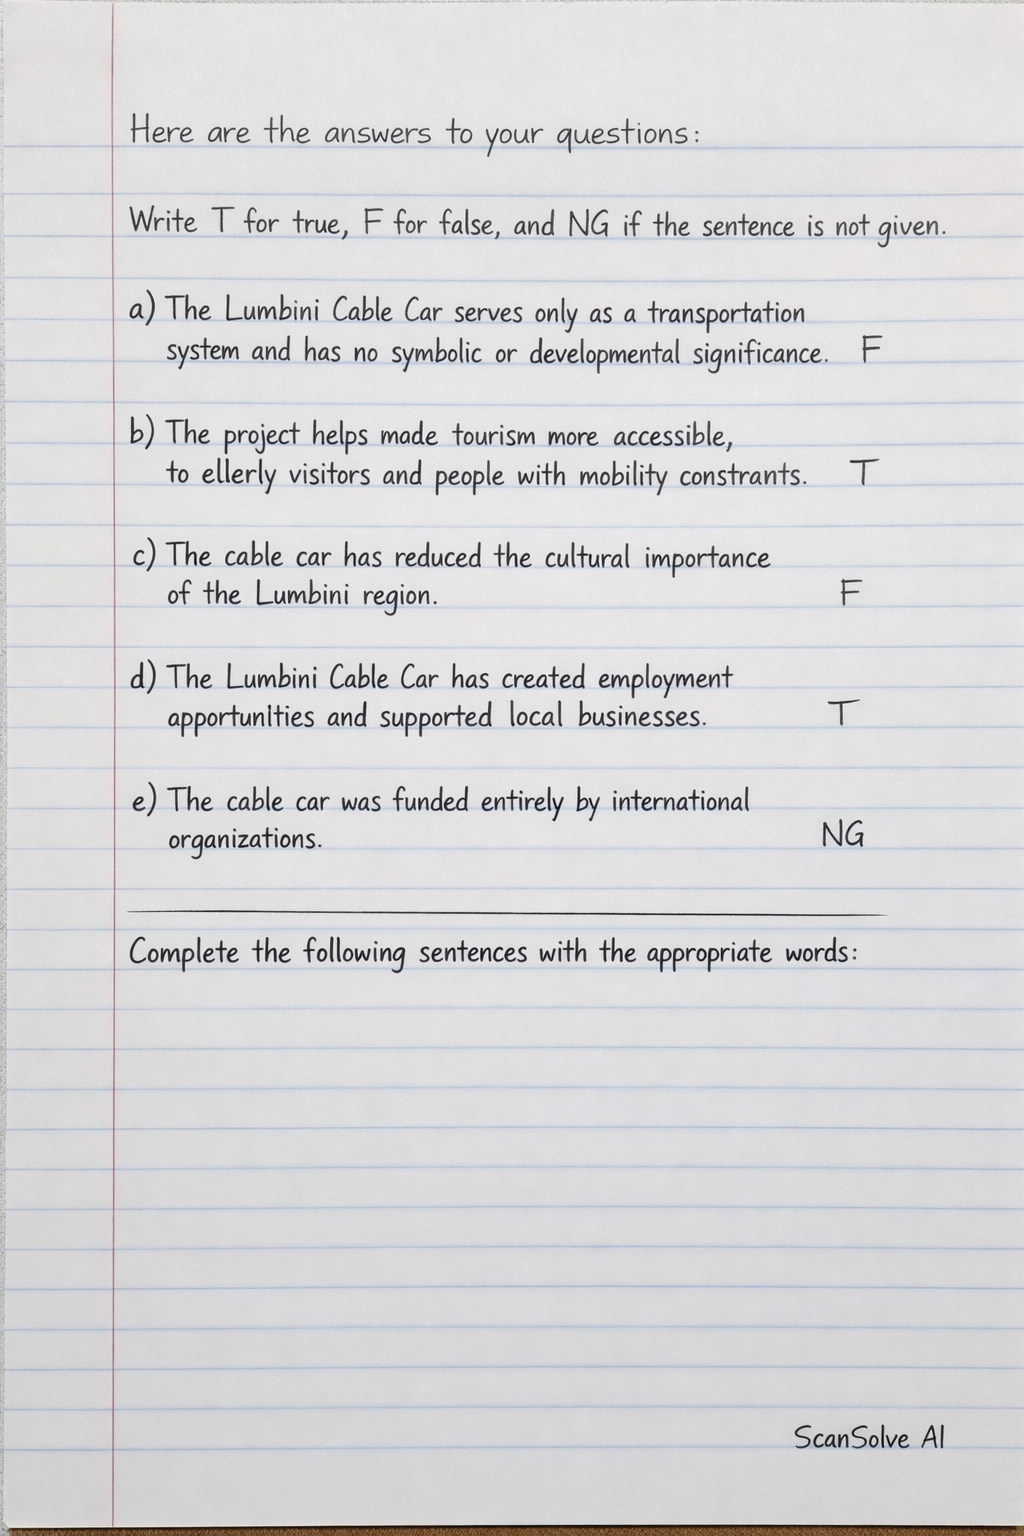 Here are the answers to your questions:
Write T for true, F for false, and NG if the sentence is not given.
a) The Lumbini Cable Car serves only as a transportation
system and has no symbolic or developmental significance. F
b) The project helps made tourism more accessible,
to ellerly visitors and people with mobility constrants. T
c) The cable car has reduced the cultural importance
of the Lumbini region. F
d) The Lumbini Cable Car has created employment
apportunities and supported local businesses. T
e) The cable car was funded entirely by international
organizations. NG
Complete the following sentences with the appropriate words:
ScanSolve AI